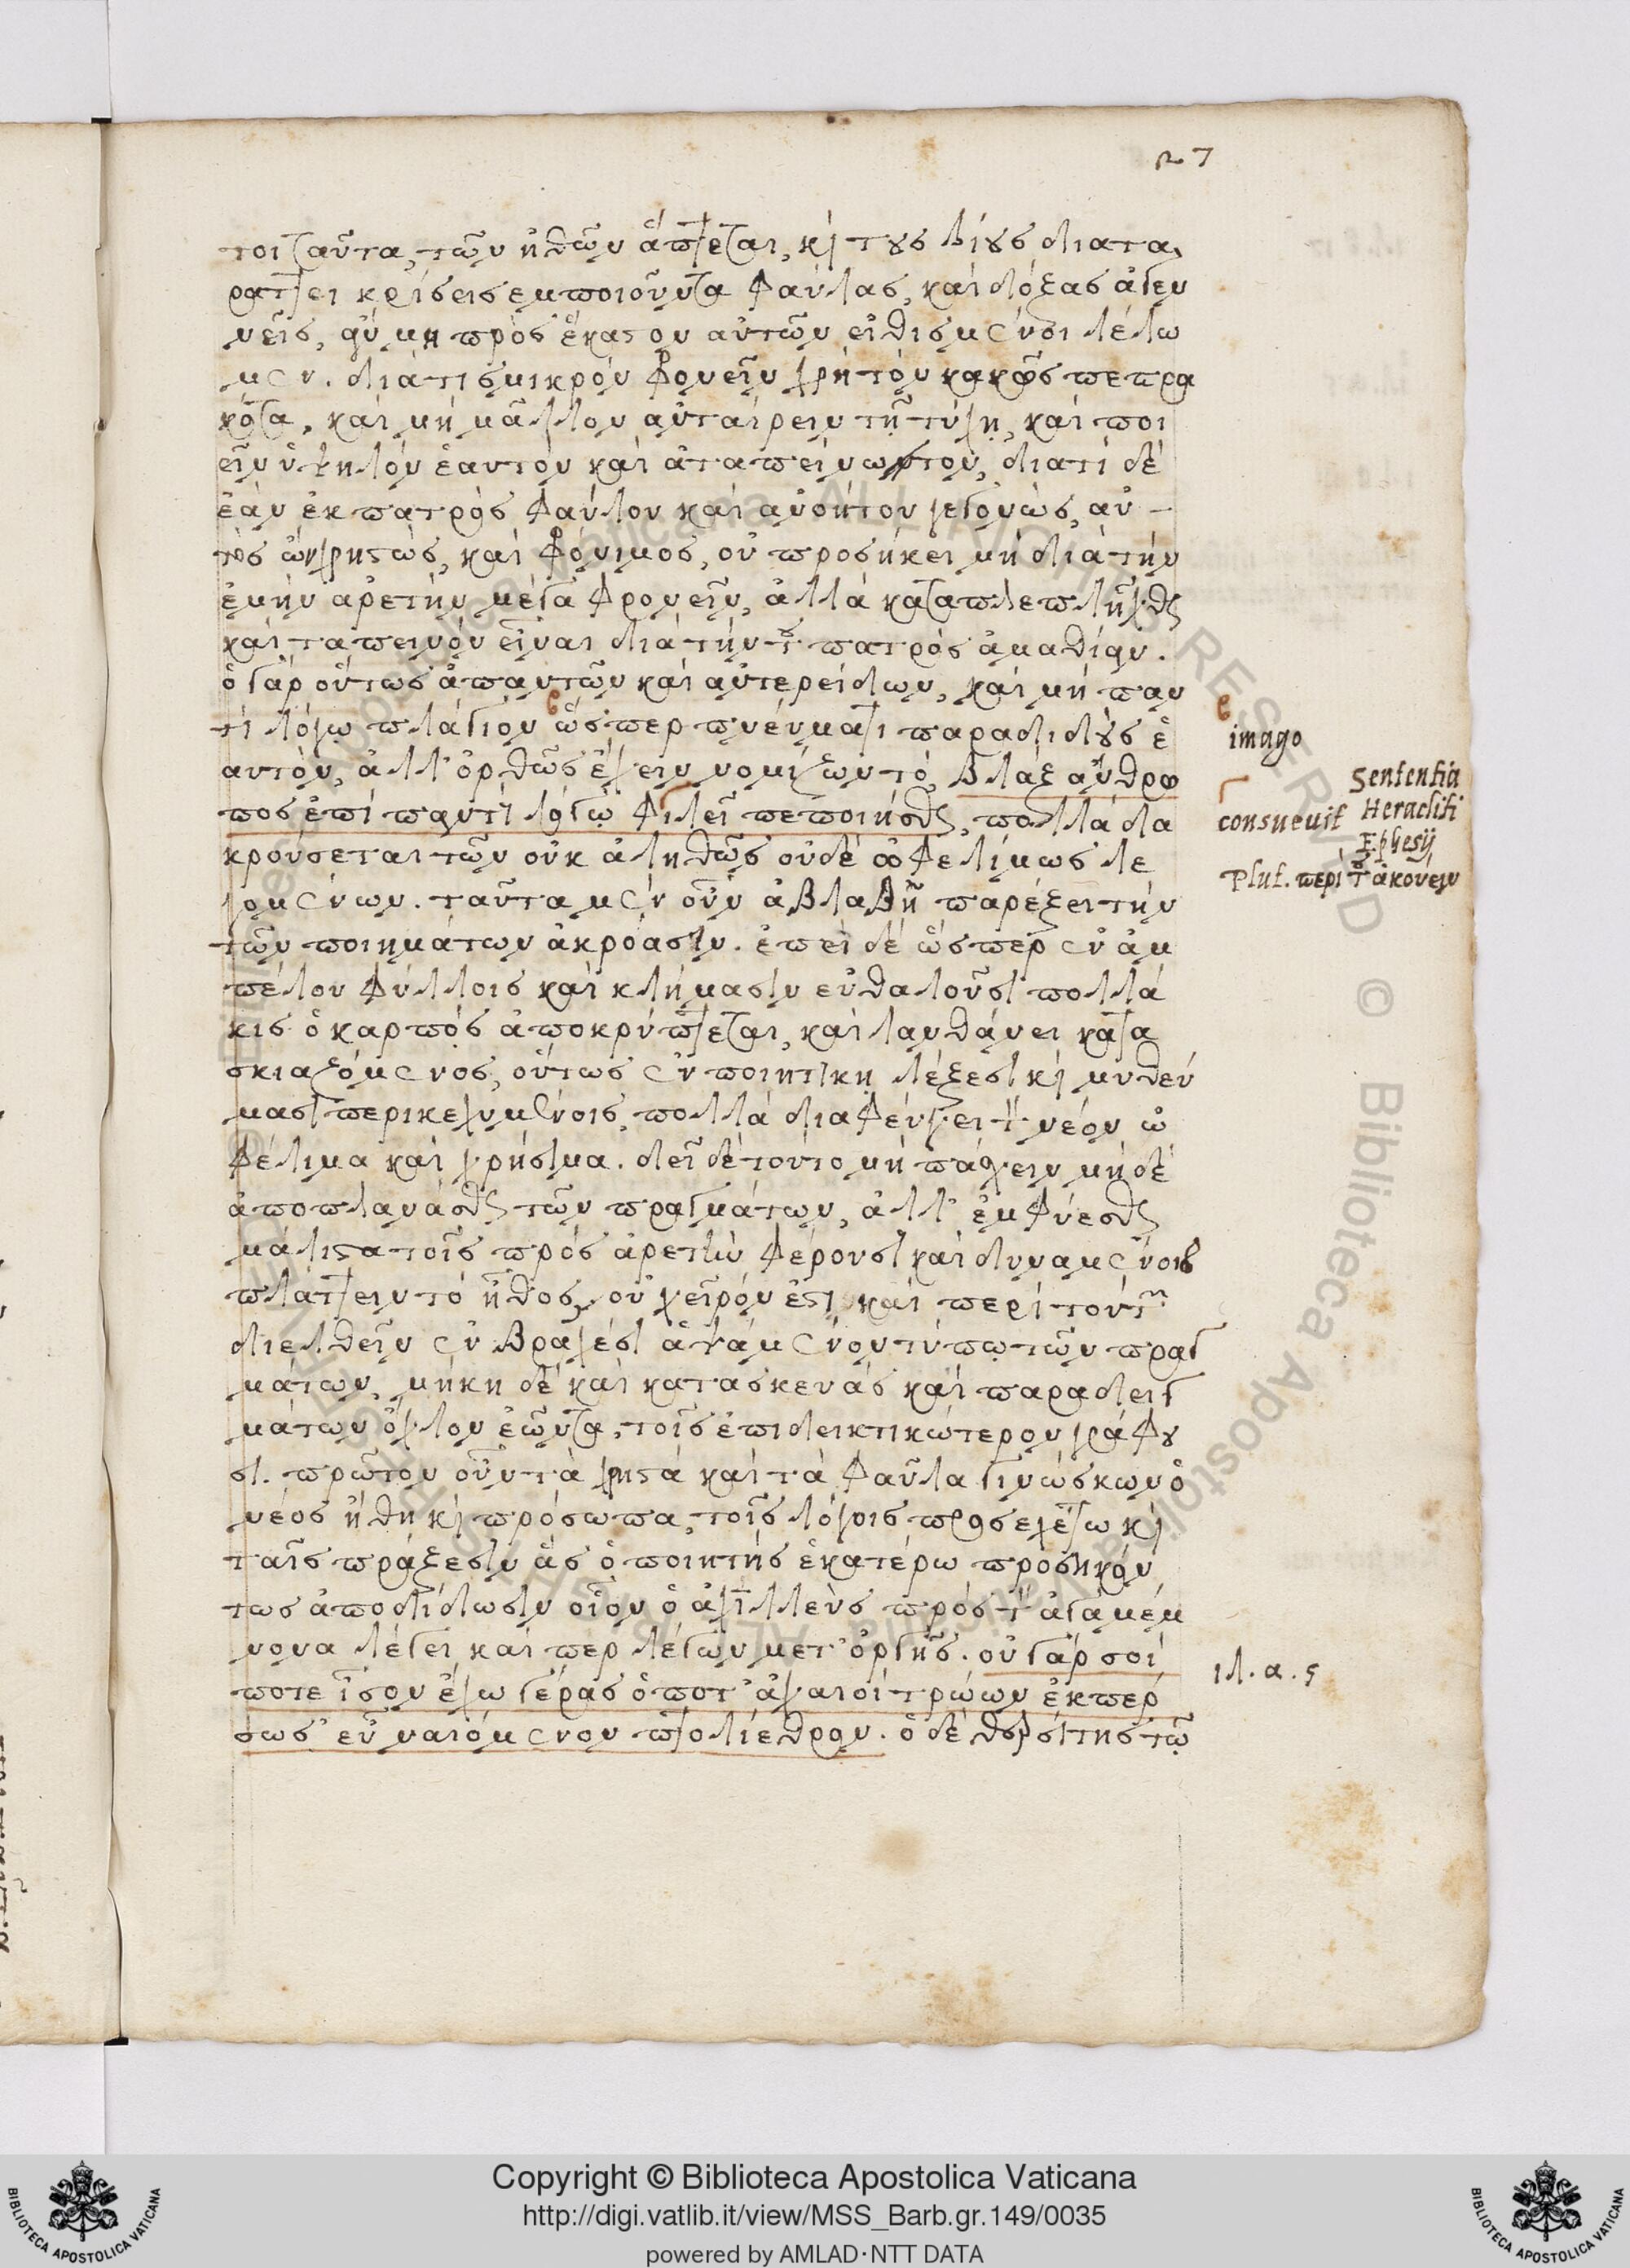 27
τοι ταῦτα, τῶν ἠθῶν ἅπτεται, καὶ τοὺς βίους διατα
ράττει κρίσεις εμποιοῦντα φαύλας, καὶ δόξας ἀγεν
νεῖς, ἂν μὴ πρὸς ἕκαστον αὐτῶν εἰθισμένοι λέγω
μεν. διατί σμικρόν φρονεῖν χρὴ τὸν κακῶς πεπρα
κότα, καὶ μὴ μᾶλλον ἀνταίρειν τῇ τύχῃ, καὶ ποι
εῖν ὑψηλὸν ἑαυτὸν καὶ ἀταπείνωτον, διατί δὲ
ἐὰν ἐκ πατρὸς φαύλου καὶ ἀνοήτου γεγονὼς, αὐ
τὸς ὢν χρηστὼς, καὶ φρόνιμος, οὐ προσήκει μὴ διὰ τὴν
ἐμὴν ἀρετὴν μέγα φρονεῖν, ἀλλὰ καταπεπλῆχθαι
καὶ ταπεινὸν εἶναι διὰ τὴν τοῦ πατρὸς ἀμαθίαν.
ὁ γὰρ οὕτως ἀπαντῶν καὶ ἀντερείδων, καὶ μὴ παν
τὶ λόγῳ πλάγιον ὥσπερ πνεύματι παραδιδοὺς ἑ
αυτὸν, ἀλλ' ὀρθῶς ἔχειν νομίζων τὸ, βλὰξ ἄνθρω
πος ἐπὶ παντὶ λόγῳ φιλεῖ πεποιῆσθαι, πολλὰ δια
κρούσεται τῶν οὐκ ἀληθῶς οὐδὲ ὠφελίμως λε
γομένων. ταῦτα μὲν οὖν ἀβλαβῆ παρέξει τὴν
τῶν ποιημάτων ἀκρόασιν. ἐπεὶ δὲ ὥσπερ ἐν ἀμ
πέλου φύλλοις καὶ κλήμασιν εὐθαλοῦσι πολλά
κις ὁ καρπὸς ἀποκρύπτεται, καὶ λανθάνει κατα
σκιαζόμενος, οὕτως ἐν ποιητικῇ λέξεσι καὶ μυθεύ
μασι περικεχυμένοις, πολλὰ διαφεύγει τὸν νέον ὠ
φέλιμα καὶ χρήσιμα. δεῖ δὲ τοῦτο μὴ πάσχειν μήδὲ
ἀποπλανᾶσθαι τῶν πραγμάτων, ἀλλ' ἐμφύεσθαι
μάλιστα τοῖς πρὸς ἀρετὴν φέρουσι καὶ δυναμένοις
πλάττειν τὸ ἦθος, οὐ χεῖρόν ἐστι καὶ περὶ τούτων
διελθεῖν ἐν βραχέσι ἁψάμενον τύπῳ τῶν πραγ
μάτων, μήκη δὲ καὶ κατασκευὰς καὶ παραδειγ
μάτων ὄχλον ἐῶντα, τοῖς ἐπιδεικτικώτερον γράφου
σι. πρῶτον οὖν τὰ χρηστὰ καὶ τὰ φαῦλα γινώσκων ὁ
νέος ἤθη καὶ πρόσωπα, τοῖς λόγοις προσεχέτω καὶ
ταῖς πράξεσιν ἃς ὁ ποιητὴς ἑκατέρῳ προσηκόν
τως ἀποδίδωσιν οἷον ὁ ἀχιλλεὺς πρὸς τὸν ἀγαμέμ
νονα λέγει καὶ περ λέγων μετ' ὀργῆς. οὐ γάρ σοί
ποτε ἶσον ἔχω γέρας ὁπότ' ἀχαιοὶ τρώων ἐκπέρ
σωσ' εὖ ναιόμενον πτολίεθρον. ὁ δὲ θερσίτης τῷ
imago
Sententia
Heracliti
Ephesij
consueuit
Plut. περὶ τοῦ ἀκούειν
ιλ. α. ς
Copyright © Biblioteca Apostolica Vaticana
http://digi.vatlib.it/view/MSS_Barb.gr.149/0035
powered by AMLAD·NTT DATA
BIBLIOTECA APOSTOLICA VATICANA
BIBLIOTECA APOSTOLICA VATICANA